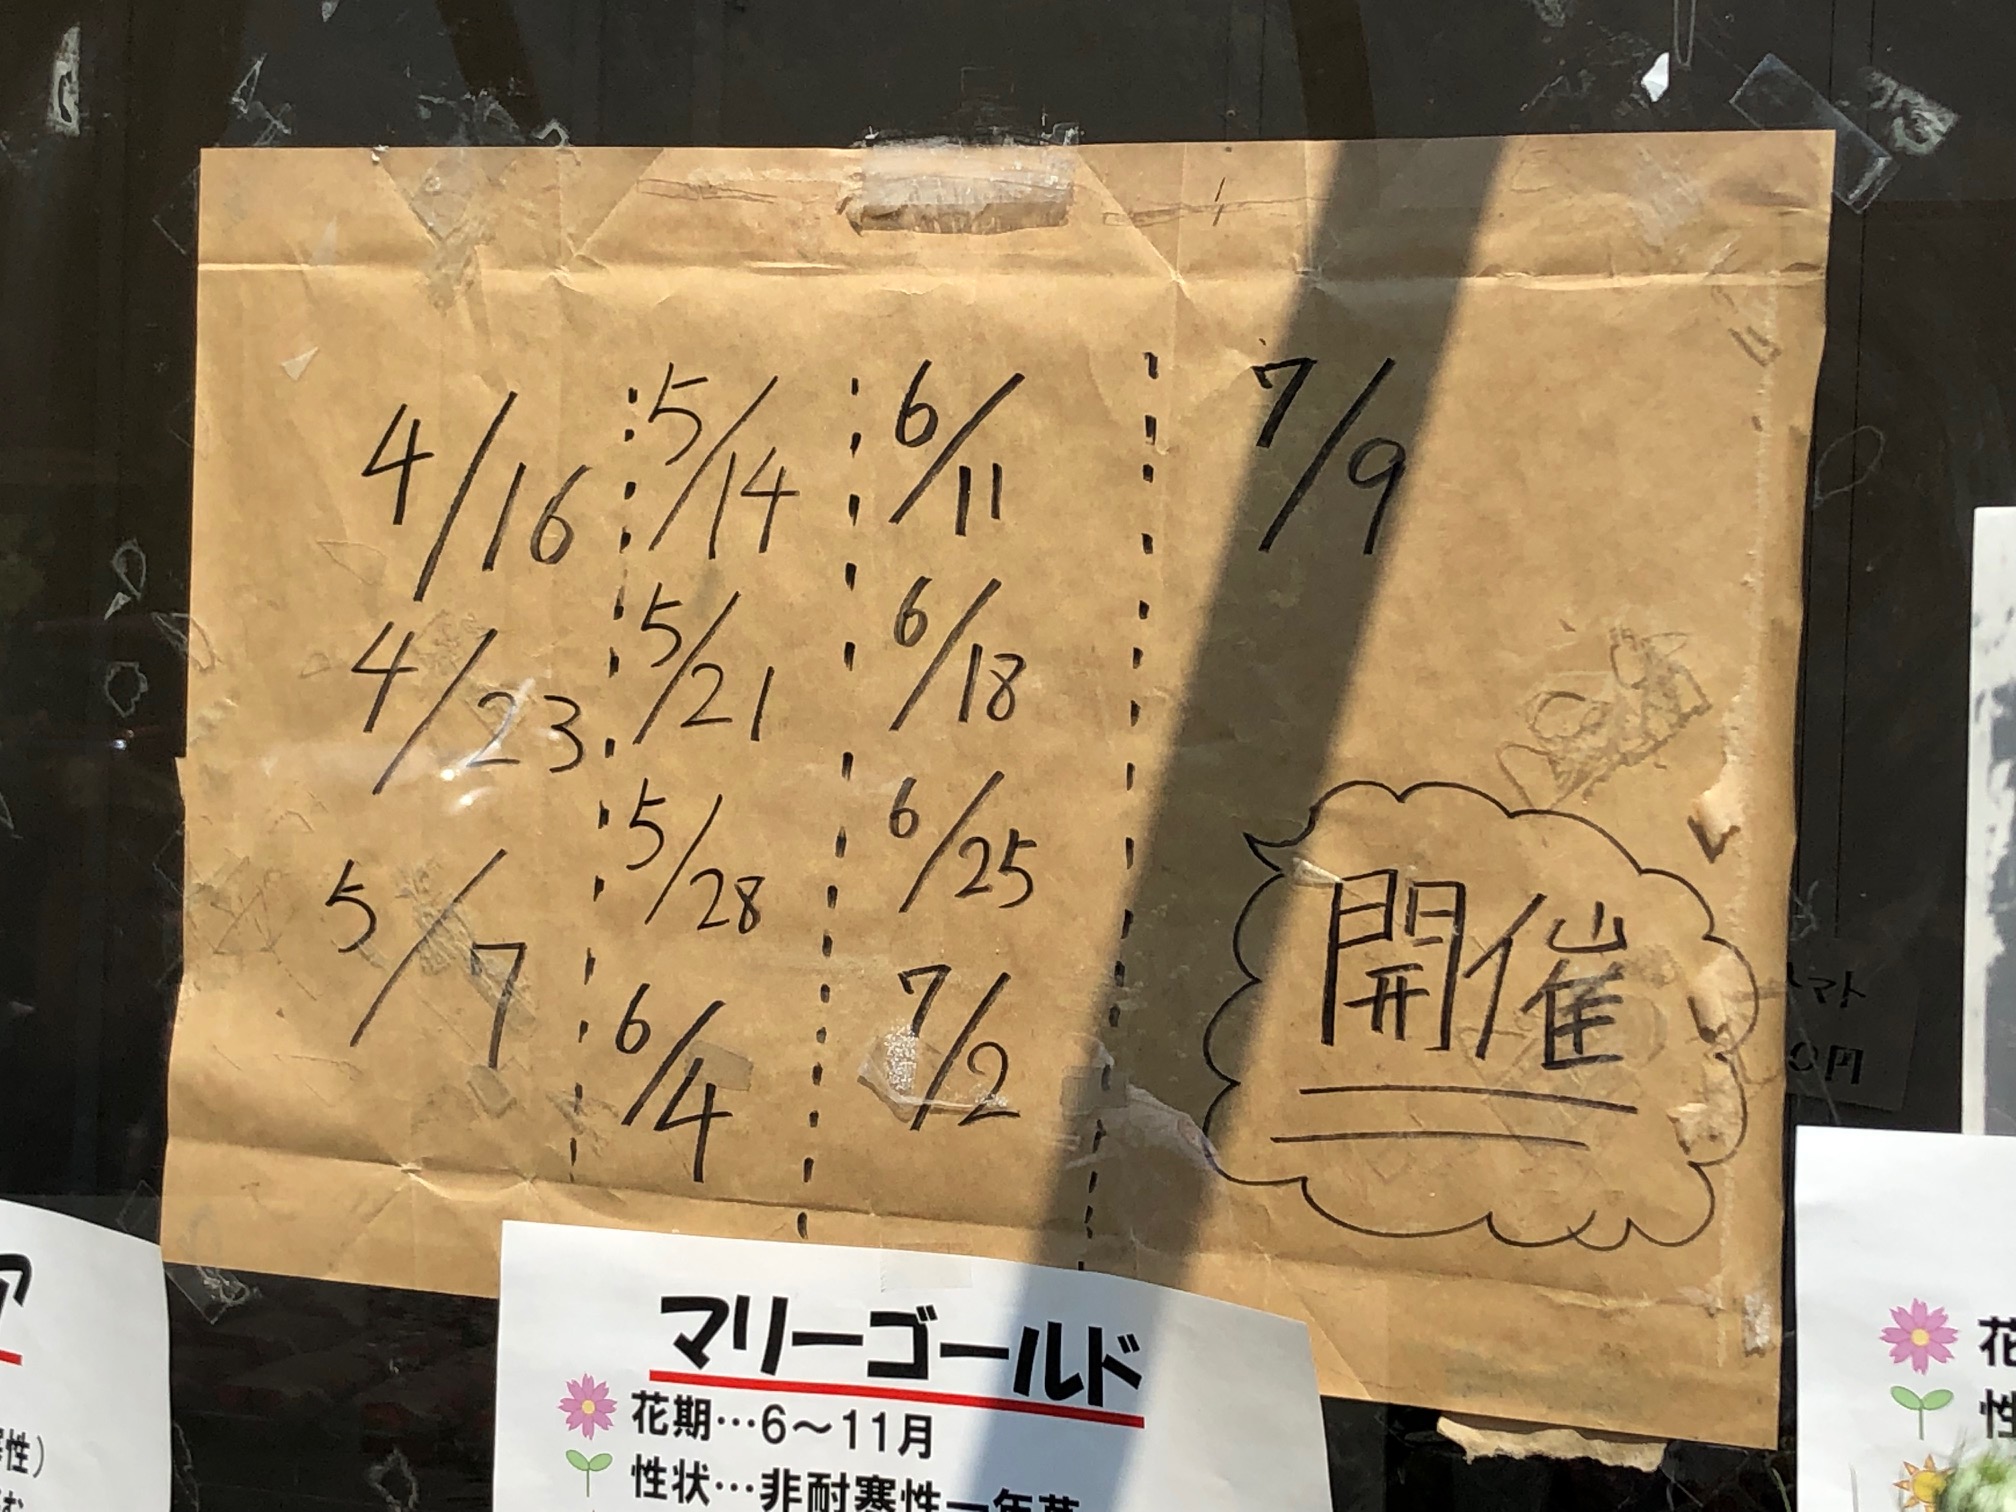 4/16
4/23
5/7
5/14
5/21
5/28
6/4
6/11
6/18
6/25
7/2
7/9
開催
トマト
0円
マリーゴールド
花期…6～11月
性状…非耐寒性一年草
ア
寒性)
花
性